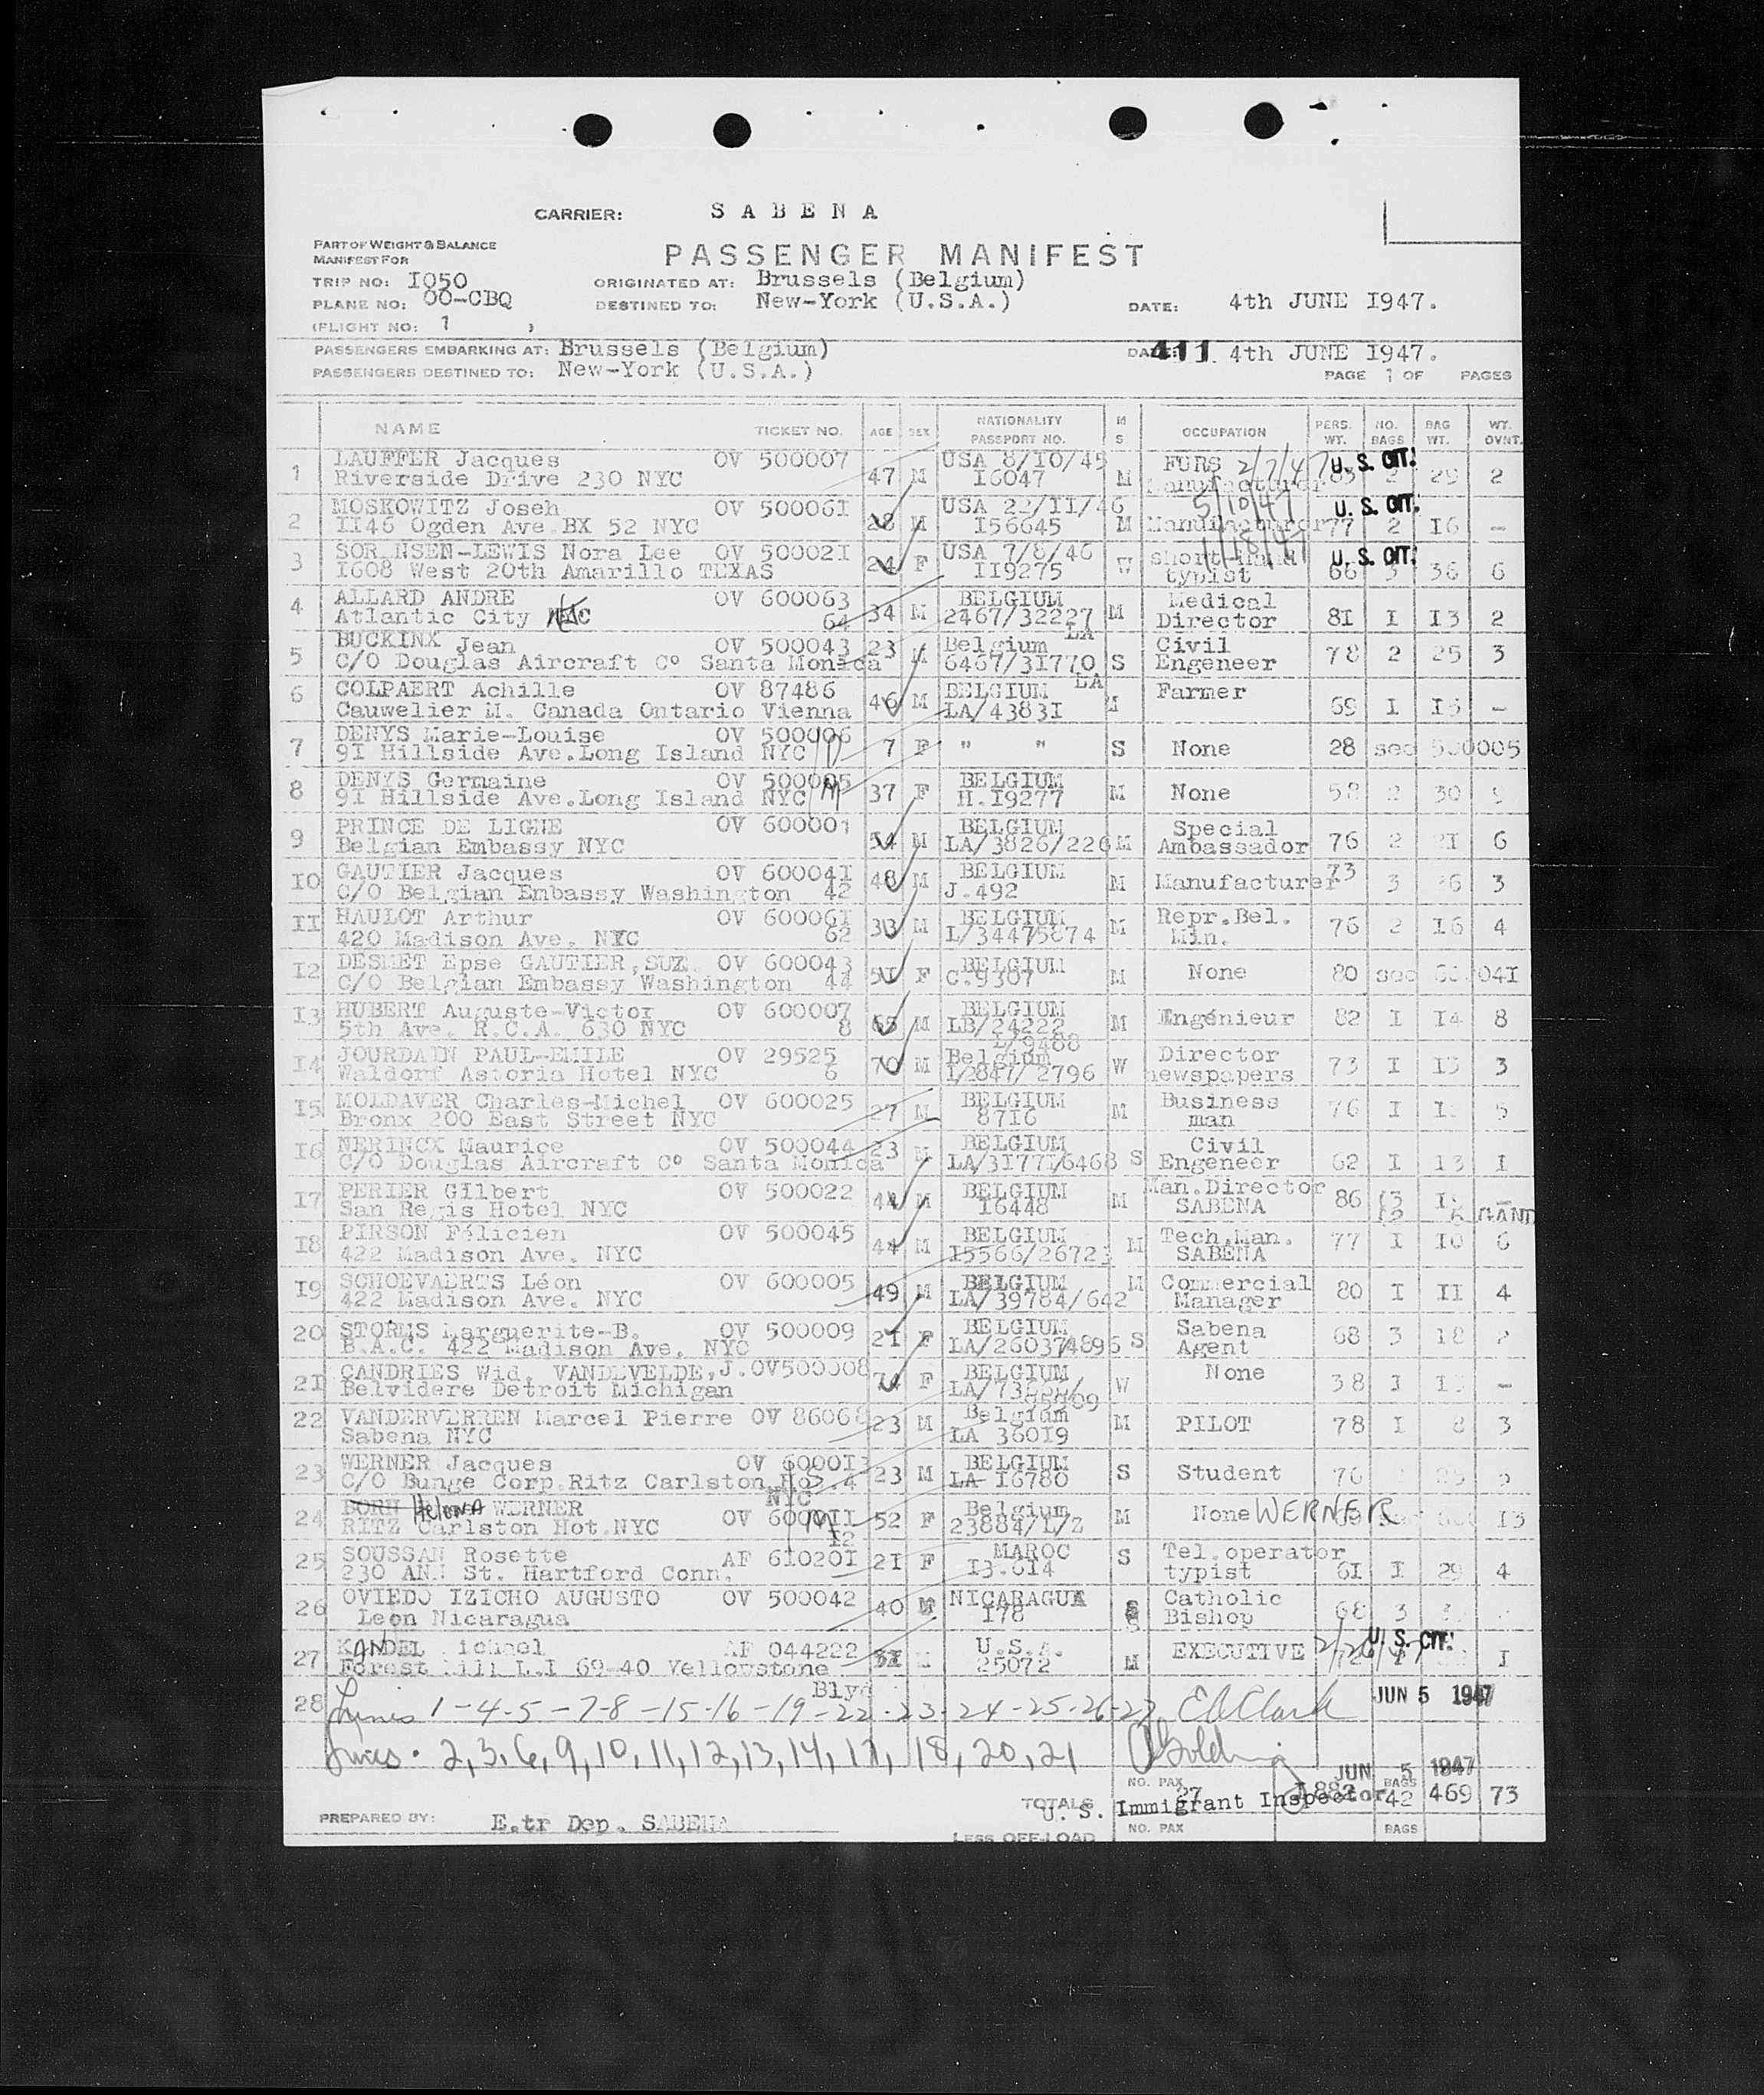 CARRIER: S A B E N A
PART OF WEIGHT & BALANCE
MANIFEST FOR
PASSENGER MANIFEST
TRIP NO: I050
ORIGINATED AT: Brussels (Belgium)
PLANE NO: OO-CBQ
DESTINED TO: New-York (U.S.A.)
DATE: 4th JUNE I947.
(FLIGHT NO: 1 )
PASSENGERS EMBARKING AT: Brussels (Belgium)
411. 4th JUNE I947.
PASSENGERS DESTINED TO: New-York (U.S.A.)
PAGE 1 OF PAGES
NAME TICKET NO. AGE SEX NATIONALITY PASSPORT NO. M S OCCUPATION PERS. WT. NO. BAGS BAG WT. WT. OVNT.
1 LAUFFER Jacques OV 500007 47 M USA 8/IO/45 M FURS 2/7/47 U. S. CIT. 83 2 29 2
Riverside Drive 230 NYC I6047 Manufacturer
2 MOSKOWITZ Joseh OV 50006I 28 M USA 22/II/46 M 5/10/47 U. S. CIT.
II46 Ogden Ave BX 52 NYC I56645 Manufacturer 77 2 I6 –
3 SORENSEN-LEWIS Nora Lee OV 50002I 24 F USA 7/8/46 W short hand 1/18/47 U. S. CIT.
I608 West 20th Amarillo TEXAS II9275 typist 66 3 36 6
4 ALLARD ANDRE OV 600063 34 M BELGIUM M Medical
Atlantic City 64 2467/32227 Director 8I I I3 2
LA
5 BUCKINX Jean OV 500043 23 M Belgium S Civil
C/O Douglas Aircraft C° Santa Monica 6467/3I770 Engeneer 78 2 25 3
LA
6 COLPAERT Achille OV 87486 46 M BELGIUM Farmer
Cauwelier M. Canada Ontario Vienna LA/4383I 69 I –
7 DENYS Marie-Louise OV 500006 7 F " " S None 28 sec 500005
9I Hillside Ave.Long Island NYC
8 DENYS Germaine OV 500005 37 F BELGIUM M None 58 2 30 9
9I Hillside Ave.Long Island NYC H.I9277
9 PRINCE DE LIGNE OV 600001 54 M BELGIUM M Special
Belgian Embassy NYC LA/3826/226 Ambassador 76 2 2I 6
IO GAUTIER Jacques OV 60004I 48 M BELGIUM M Manufacturer 73 3 3
C/O Belgian Embassy Washington 42 J.492
II HAULOT Arthur OV 60006I 33 M BELGIUM M Repr.Bel. 76 2 I6 4
420 Madison Ave. NYC 62 L/34475674 Min.
I2 DESMET Epse GAUTIER,SUZ. OV 600043 5I F BELGIUM M None 80 sec 60004I
C/O Belgian Embassy Washington 44 C.9307
I3 HUBERT Auguste-Victor OV 600007 65 M BELGIUM M Ingénieur 82 I I4 8
5th Ave. R.C.A. 630 NYC 8 LB/24222
L/9488
I4 JOURDAIN PAUL-EMILE OV 29525 70 M Belgium W Director 73 I I3 3
Waldorf Astoria Hotel NYC 6 I/2847/ 2796 newspapers
I5 MOLDAVER Charles-Michel OV 600025 27 M BELGIUM M Business 76 I 5
Bronx 200 East Street NYC 87I6 man
I6 NERINCX Maurice OV 500044 23 M BELGIUM S Civil
C/O Douglas Aircraft C° Santa Monica LA/3I77I/6468 Engeneer 62 I I3 I
I7 PERIER Gilbert OV 500022 44 M BELGIUM M Man.Director 86
San Regis Hotel NYC I6448 SABENA GAND
I8 PIRSON Félicien OV 500045 44 M BELGIUM M Tech.Man. 77 I IO 6
422 Madison Ave. NYC I5566/26723 SABENA
I9 SCHOEVAERTS Léon OV 600005 49 M BELGIUM M Commercial 80 I II 4
422 Madison Ave. NYC LA/39784/642 Manager
20 STORMS Marguerite-B. OV 500009 2I F BELGIUM S Sabena 68 3 I8 2
B.A.C. 422 Madison Ave. NYC LA/260374896 Agent
2I CANDRIES Wid. VANDEVELDE,J.OV500008 74 F BELGIUM W None 38 I –
Belvidere Detroit Michigan
22 VANDERVERREN Marcel Pierre OV 86068 23 M Belgium M PILOT 78 I 8 3
Sabena NYC LA 360I9
23 WERNER Jacques OV 6000I3 23 M BELGIUM S Student 76
C/O Bunge Corp.Ritz Carlston Ho .4 LA I6780
NYC
24 BORH Helena WERNER OV 6000II 52 F Belgium M None WERNER I3
RITZ Carlston Hot.NYC I2 23884/L/Z
25 SOUSSAN Rosette AF 6I020I 2I F MAROC S Tel.operator
230 ANN St. Hartford Conn. I3.6I4 typist 6I I 29 4
26 OVIEDO IZICHO AUGUSTO OV 500042 40 M NICARAGUA S Catholic
Leon Nicaragua I78 Bishop 68 3
27 KANDEL Michael AF 044222 3I M U.S.A. M EXECUTIVE 2/26/47 U. S. CIT. I
Forest Hill L.I 69-40 Yellowstone 25072
Blvd
28 Lines 1-4-5-7-8-15-16-19-22-23-24-25-26-27 E A Clark JUN 5 1947
Lines. 2,3,6,9,10,11,12,13,14,17, 18, 20, 21
JUN 5 1947
TOTALS NO. PAX 27 I882 BAGS 42 469 73
U. S. Immigrant Inspector
PREPARED BY: E.tr Dep. SABENA
LESS OFF-LOAD NO. PAX BAGS